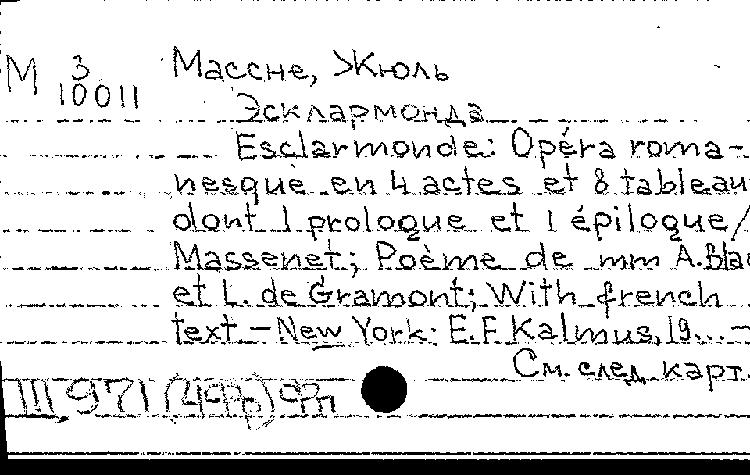 М 3
10011
Массне, Жюль
Эсклармонда
Esclarmonde: Opéra roma-
nesque en 4 actes et 8 tableau
dont 1 prologue et 1 épilogue/
Massenet; Poème de mm A.Blau
et L. de Gramont; With french
text – New York: E.F. Kalmus, 19... –
См. след. карт.
III 971 (4Фр)